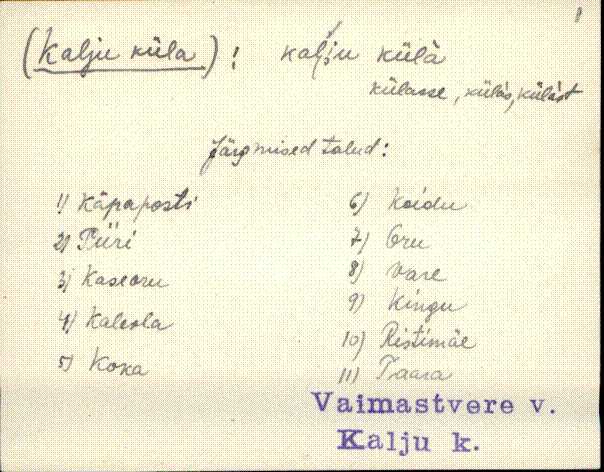 (Kalju küla)! kalju külà
külasse, külàs, külàst
Järgmised talud:
1) Käpaposti
2) Piiri
3) Kaseoru
4) Kaleola
5) Koka
6) Koidu
7) Oru
8) Vare
9) Kingu
10) Ristimäe
11) Taara
Vaimastvere v.
Kalju k.